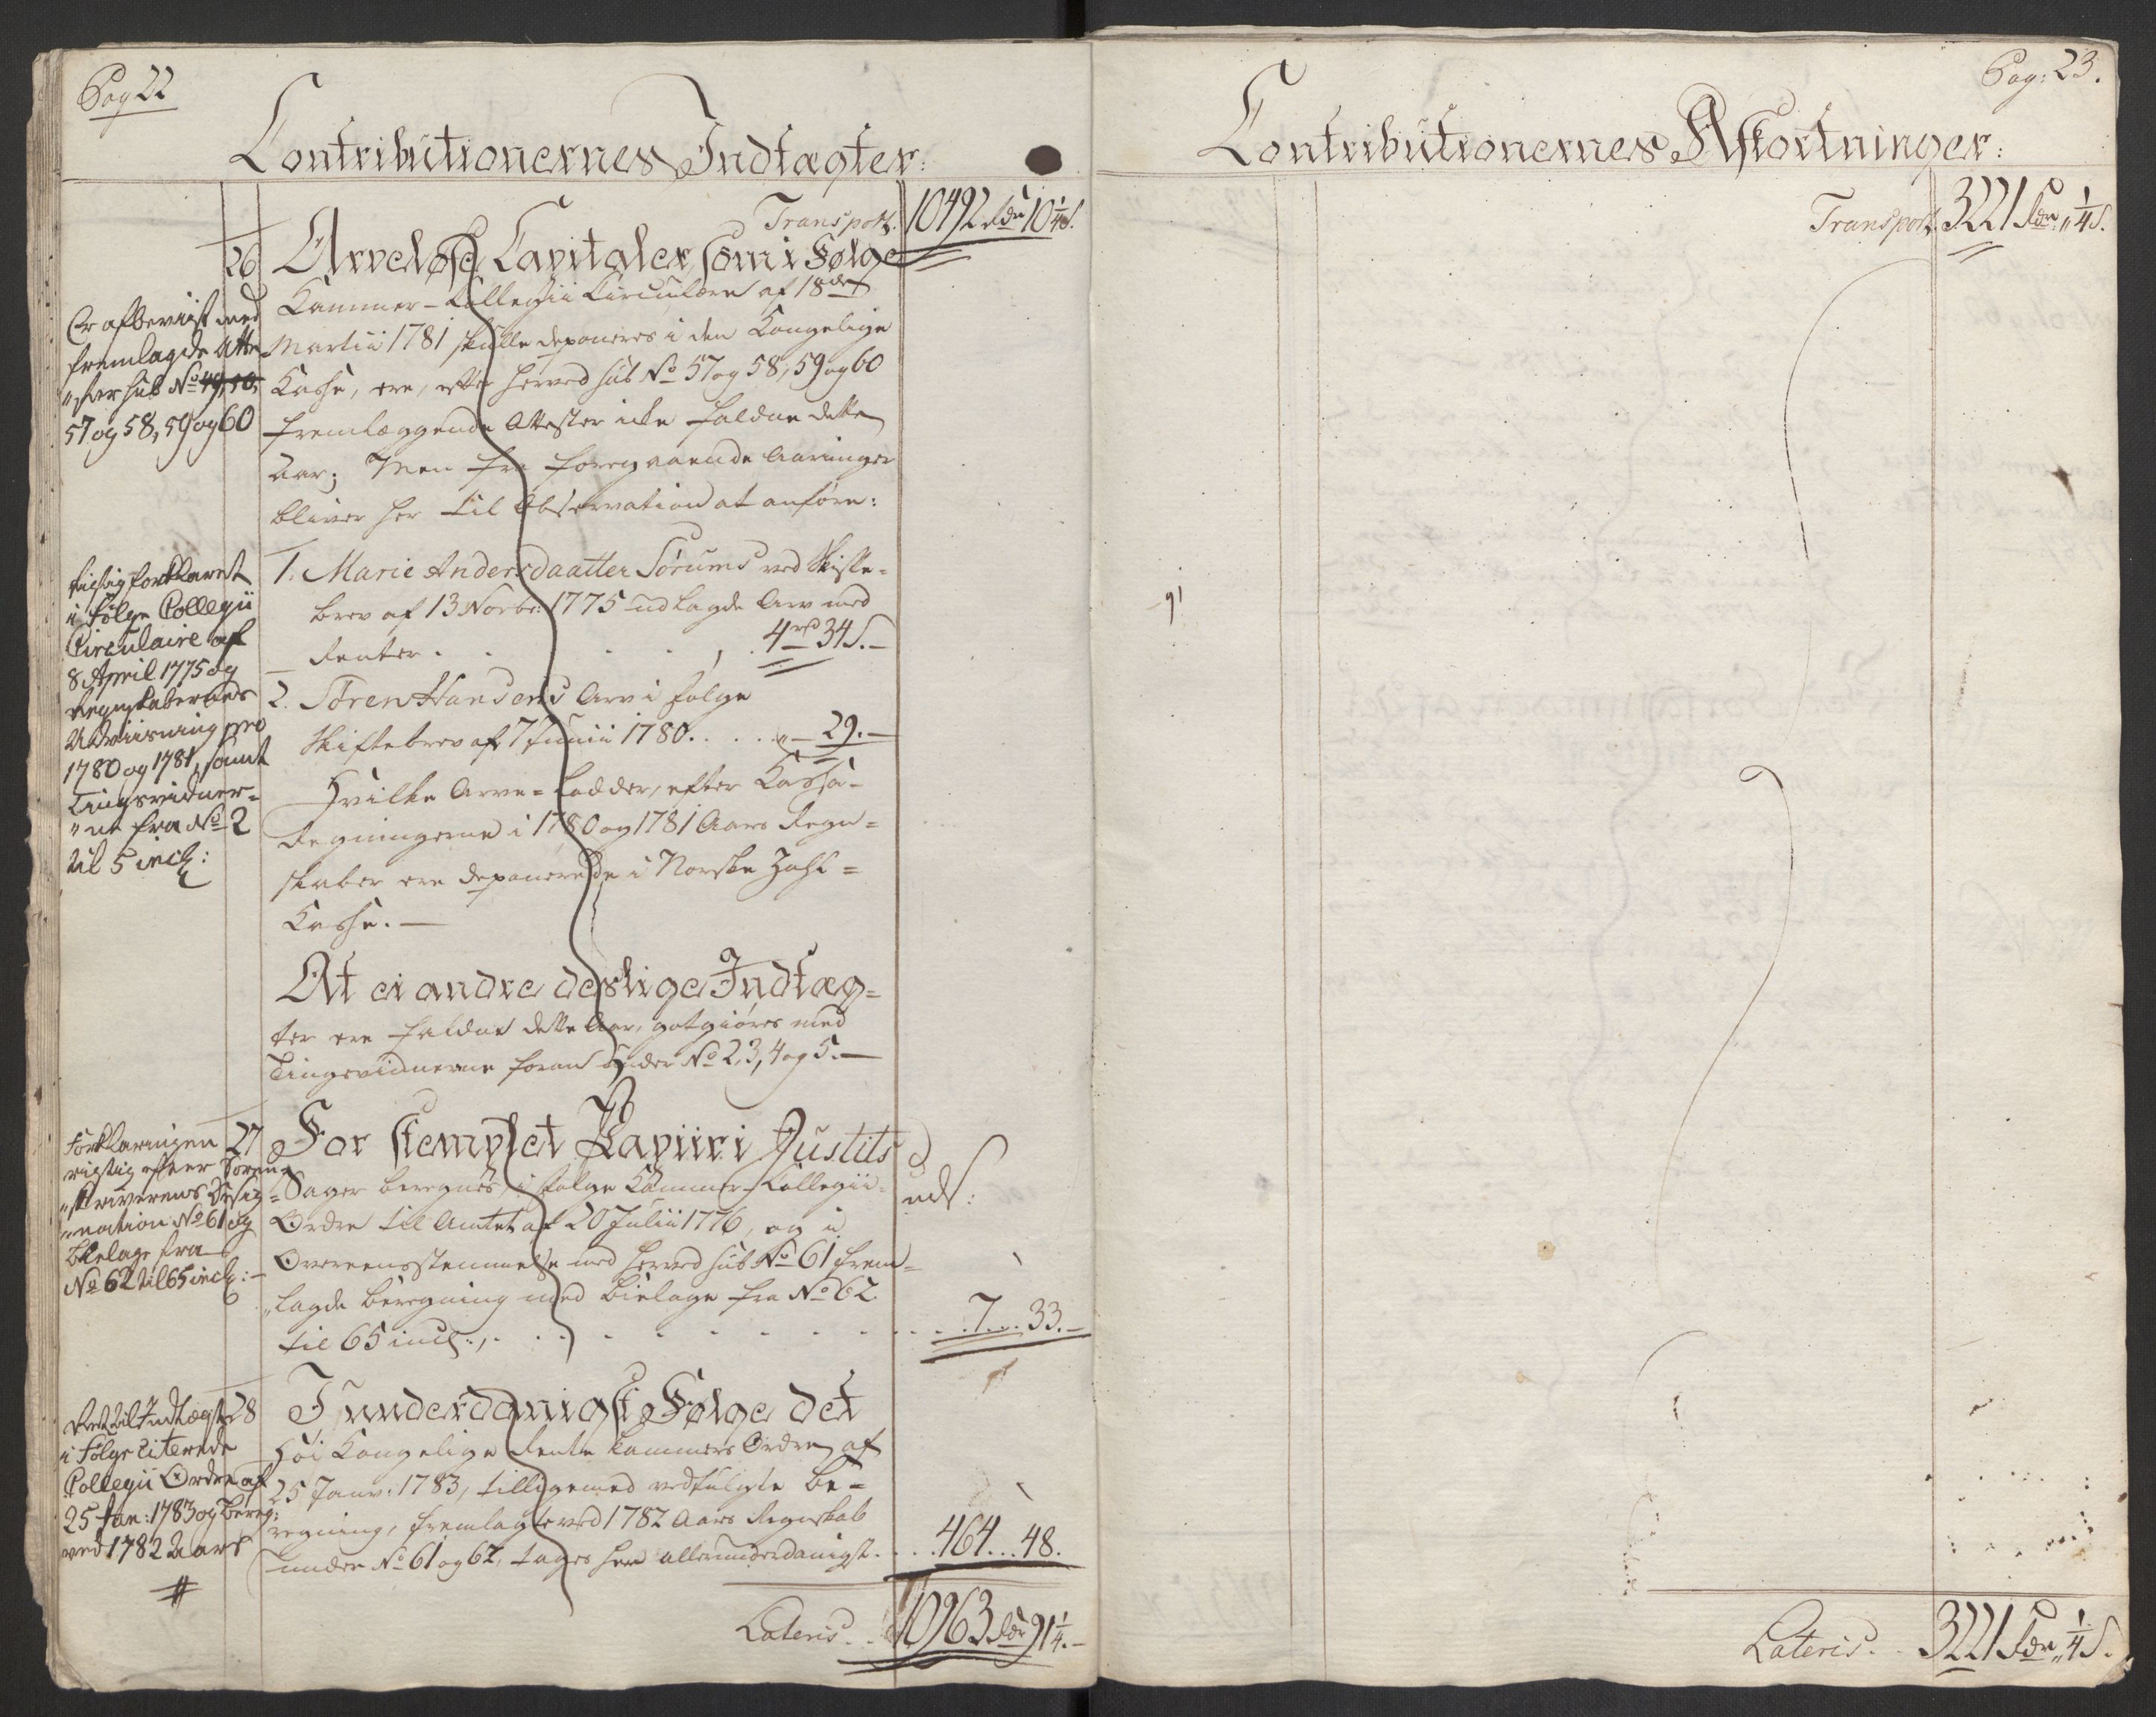 Pag 22
Contributionernes Indtægter:
Transport. 10492 rdr 10 1/4 s.
26 Arveløse Capitaler, som i Følge
Kammer-Collegii Circulære af 18de
Martii 1781 skulle deponeres i den Kongelige
Kasse, ere, efter herved sub No 57 og 58, 59 og 60
fremlæggende Attester icke faldne dette
Aar; Men fra foregaaende Aaringer
bliver her til Observation at anføre:
Er afbeviist med
fremlagde Atte-
"ster sub No 49, 50,
57 og 58, 59 og 60
1. Marie Andersdaatter Sørums ved Skifte-
brev af 13 Novbr: 1775 udlagde Arv med
Renter . . . . 4 rd 34 s. -
2. Søren Hansens Arv i følge
Skiftebrev af 7 Junii 1780. . . . " - 29. -
Hvilke Arve-Lodder, efter Cassa-
Regningerne i 1780 og 1781 Aars Regn-
skaber ere deponerede i Norske Zahl-
Kasse. -
rigtig forklaret
i Følge Collegii
Circulaire af
8 April 1775 og
Regnskabernes
Udviisning pro
1780 og 1781, samt
Tingsvidner-
"ne fra No 2
til 5 incl:
At ei andre deslige Indtæg-
ter ere faldne dette Aar, gotgiøres med
Tingsvidnerne foran under No 2, 3, 4 og 5. -
27 For stemplet Papiir i Justits
Sager beregnes, i følge Kammer-Collegii
Ordre til Amtet af 20 Julii 1776, og i
Overeensstemmelse med herved sub No 61 frem-
"lagde Beregning med Bielage fra No 62
til 65 incl:, . . . . . . . 7 . . 33. -
Forklaringen
rigtig efter Soren-
"skriverens Desig-
"nation No 61 og
Bielage fra
No 62 til 65 incl: -
28 I underdanigst Følge det
Høi Kongelige Rente Kammers Ordre af
25 Janv: 1783, tilligemed vedfulgte Be-
regning, fremlagt ved 1782 Aars Regnskab
under No 61 og 62, tages her allerunderdanigst. . . 464 . . 48.
Ret til Indtægt
i Følge citerede
Collegii Ordre af
25 Jan: 1783 og Bereg:
ved 1782 Aars
Lateris . . 10963 rdr 91 1/4. -
Pag: 23.
Contributionernes Afkortninger:
Transport. 3221 rdr " 1/4 s.
Lateris. . 3221 rdr " 1/4 s.